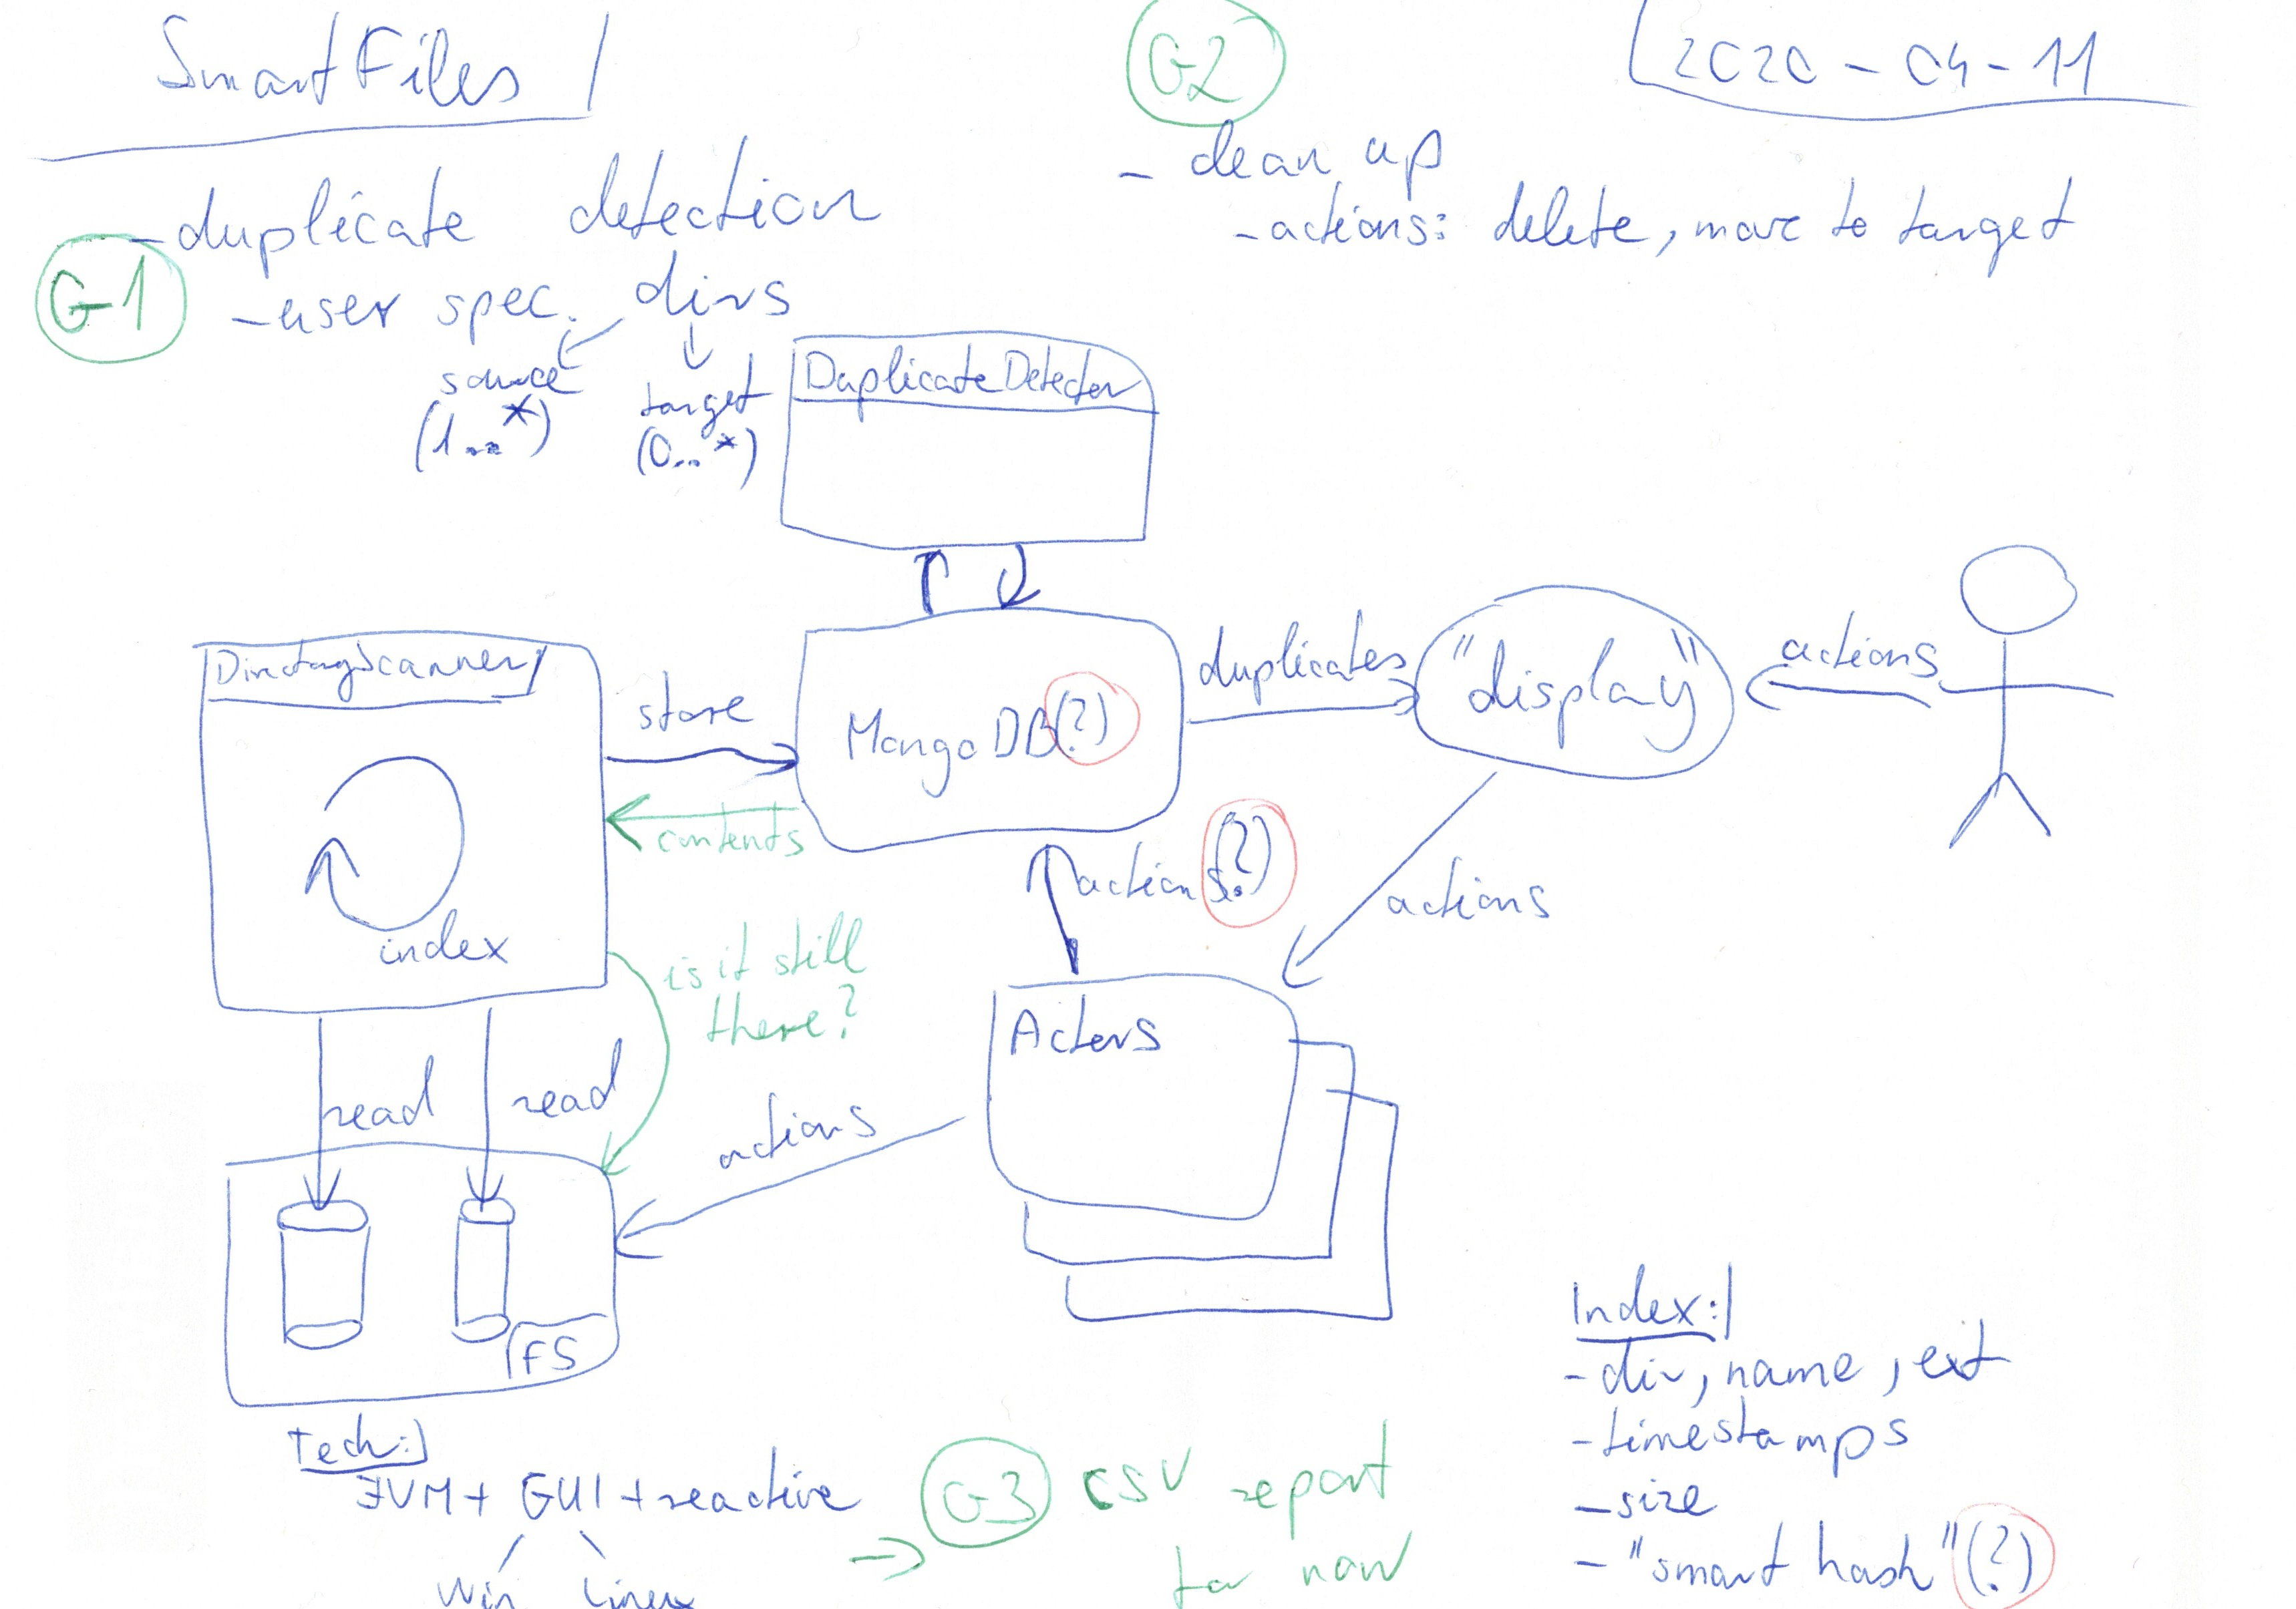 SmartFiles
G2
2020-04-11
- clean up
- actions: delete, move to target
- duplicate detection
G1
- user spec. dirs
source
(1..*)
target
(0..*)
DuplicateDetector
DirectoryScanner
store
MongoDB(?)
duplicates
"display"
actions
contents
index
actions(?)
actions
is it still
there?
Actors
read
read
actions
FS
Index:
- dir, name, ext
- timestamps
- size
- "smart hash" (?)
Tech:
JVM + GUI + reactive
Win Linux
-> G3 CSV report
for now